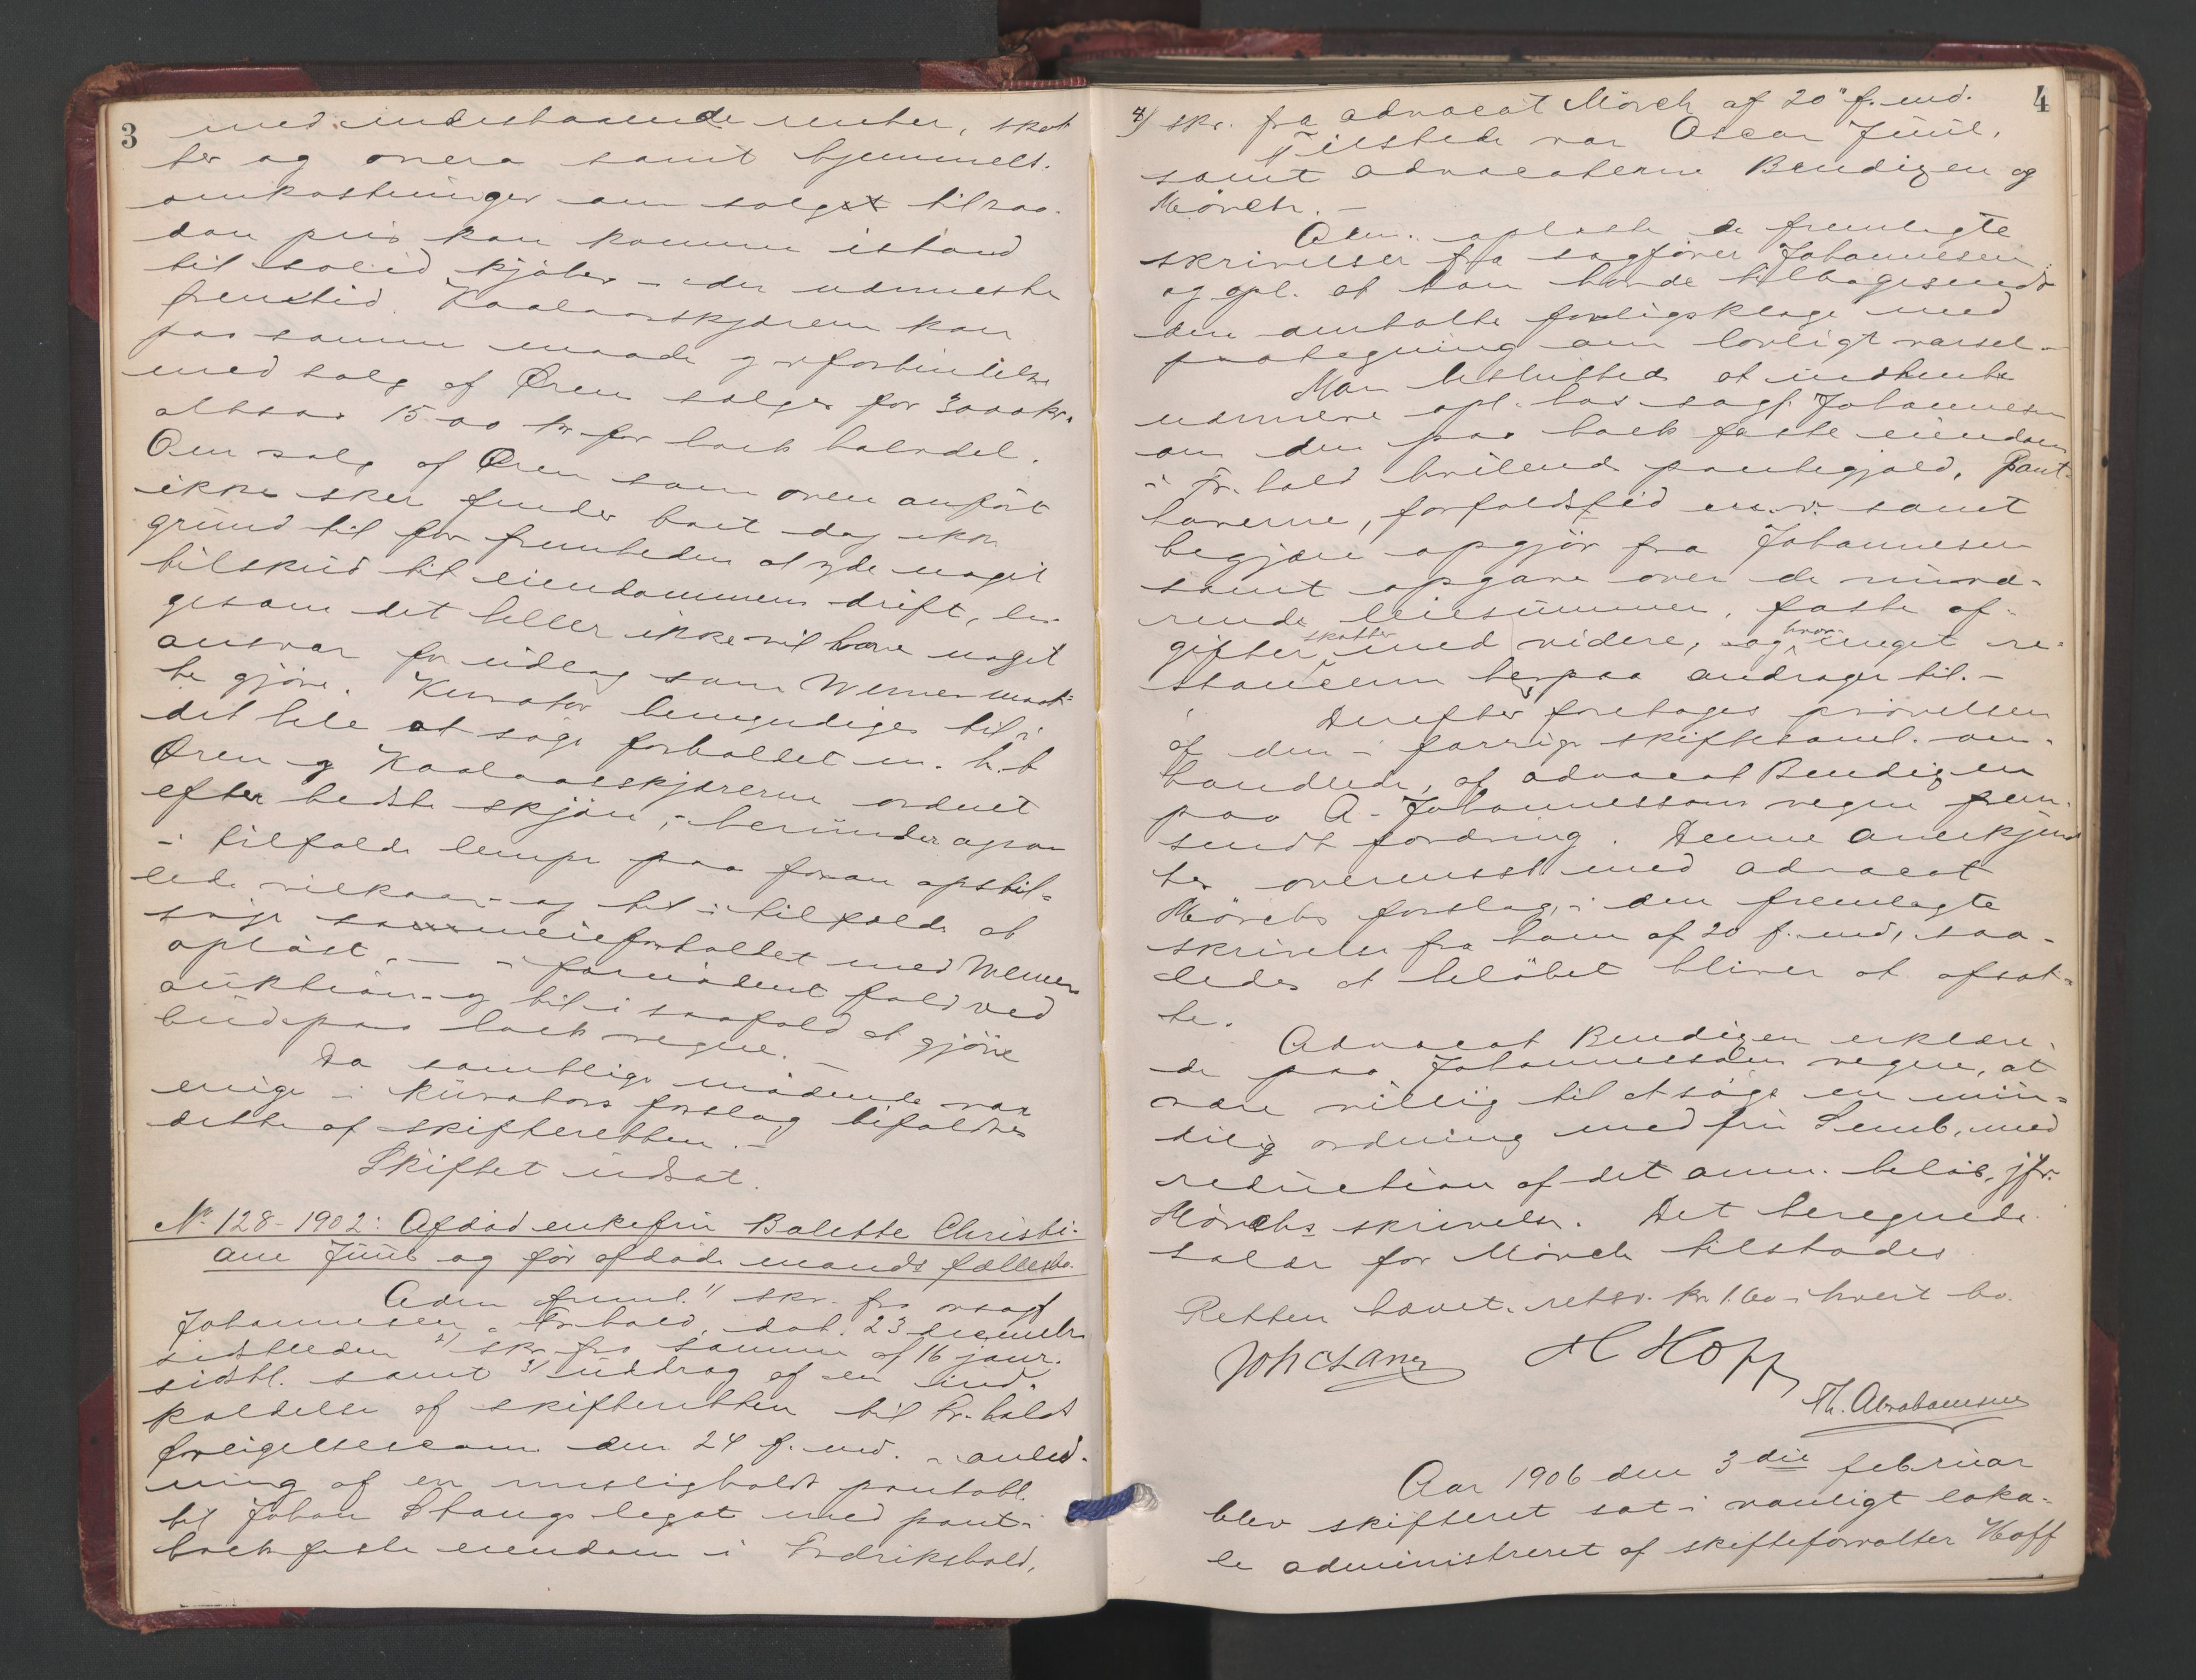 3
med indestaaende renter, skat
ter og onera samt hjemmels.
omkostninger om salget til saa.
dan pris kan komme istand
til solid kjøber i den nærmeste
fremtid. Kaalaasskjærene kan
paa samme maade og i forbindelse
med salg af Øren sælges for 3000 kr.
altsaa 1500 kr for boets halvdel.
Om salg af Øren som oven anført
ikke sker finder boet dog ikke
grund til for fremtiden at yde noget
tilskud til eiendommens drift, li-
gesom det heller ikke vil have noget
ansvar for udlæg som Werner maat-
te gjøre. Kurator bemyndiges til i
det hele at søge forholdet m. h. t
Øren og Kaalaasskjærene ordnet
efter bedste skjøn, herunder ogsaa
i tilfælde lempe paa foran opstil-
lede vilkaar og til i tilfælde at
søge sameieforholdet med Werner
opløst, i fornødent fald ved
auktion og til i saafald at gjøre
bud paa boets vegne. —
Da samtlige mødende var
enige i kurators forslag bifaldtes
dette af skifteretten. —
Skiftet udsat.
No 128-1902: Afdød enkefru Balette Christi-
ane Juul og før afdøde mands fællesbo.
Adm freml. 1) skr. fra ovsagf
Johannesen, Fr.hald, dat. 23 december
sidstleden 2) skr. fra samme af 16 janr.
sidstl. samt 3) uddrag af en ind-
kaldelse af skifteretten til Fr.halds
forligelsescom. den 24 f. md. i anled-
ning af en misligholdt pantobl.
til Johan Stangs legat med pant i
boets faste eiendom i Fredrikshald,
4
4) skr. fra advocat Mörch af 20 f. md.
Tilstede var Oscar Juul,
samt advocaterne Bendizen og
Mörch. —
Adm. oplæste de fremlagte
skrivelser fra sagfører Johannesen
og opl. at han havde tilbagesendt
den omtalte forligsklage med
paategning om lovligt varsel —
Man besluttede at indhente
nærmere opl. hos sagf. Johannesen
om den paa boets faste eiendom
i Fr.hald hvilende pantegjæld, Pant-
haverne, forfaldstid m. v. samt
begjære opgjør fra Johannesen
samt opgave over de nuvæ-
rende leiesummer, faste af-
gifter, skatter med videre, og hvor meget re-
stancerne herpaa andrager til. —
Derefter foretages prøvelsen
af den i forrige skiftesaml. om-
handlede, af advocat Bendizen
paa A. Johannessons vegne frem-
sendt fordring. Denne anerkjend
tes overensst med advocat
Mörchs forslag, i den fremlagte
skrivelse fra ham af 20 f. md, saa-
ledes at beløbet bliver at afsæt-
te.
Advocat Bendizen erklære-
de paa Johannessons vegne, at
være villig til at søge en min-
delig ordning med fru Semb, med
reduction af det anm. beløb, jfr.
Mörchs skrivelse. Det beregnede
salær for Mörch tilstodes
Retten hævet. retsv. kr 1.60 i hvert bo.
H Hoff
Th. Abrahamsen
Aar 1906 den 3 die februar
blev skifteret sat i vanligt loka-
le administreret af skifteforvalter Hoff